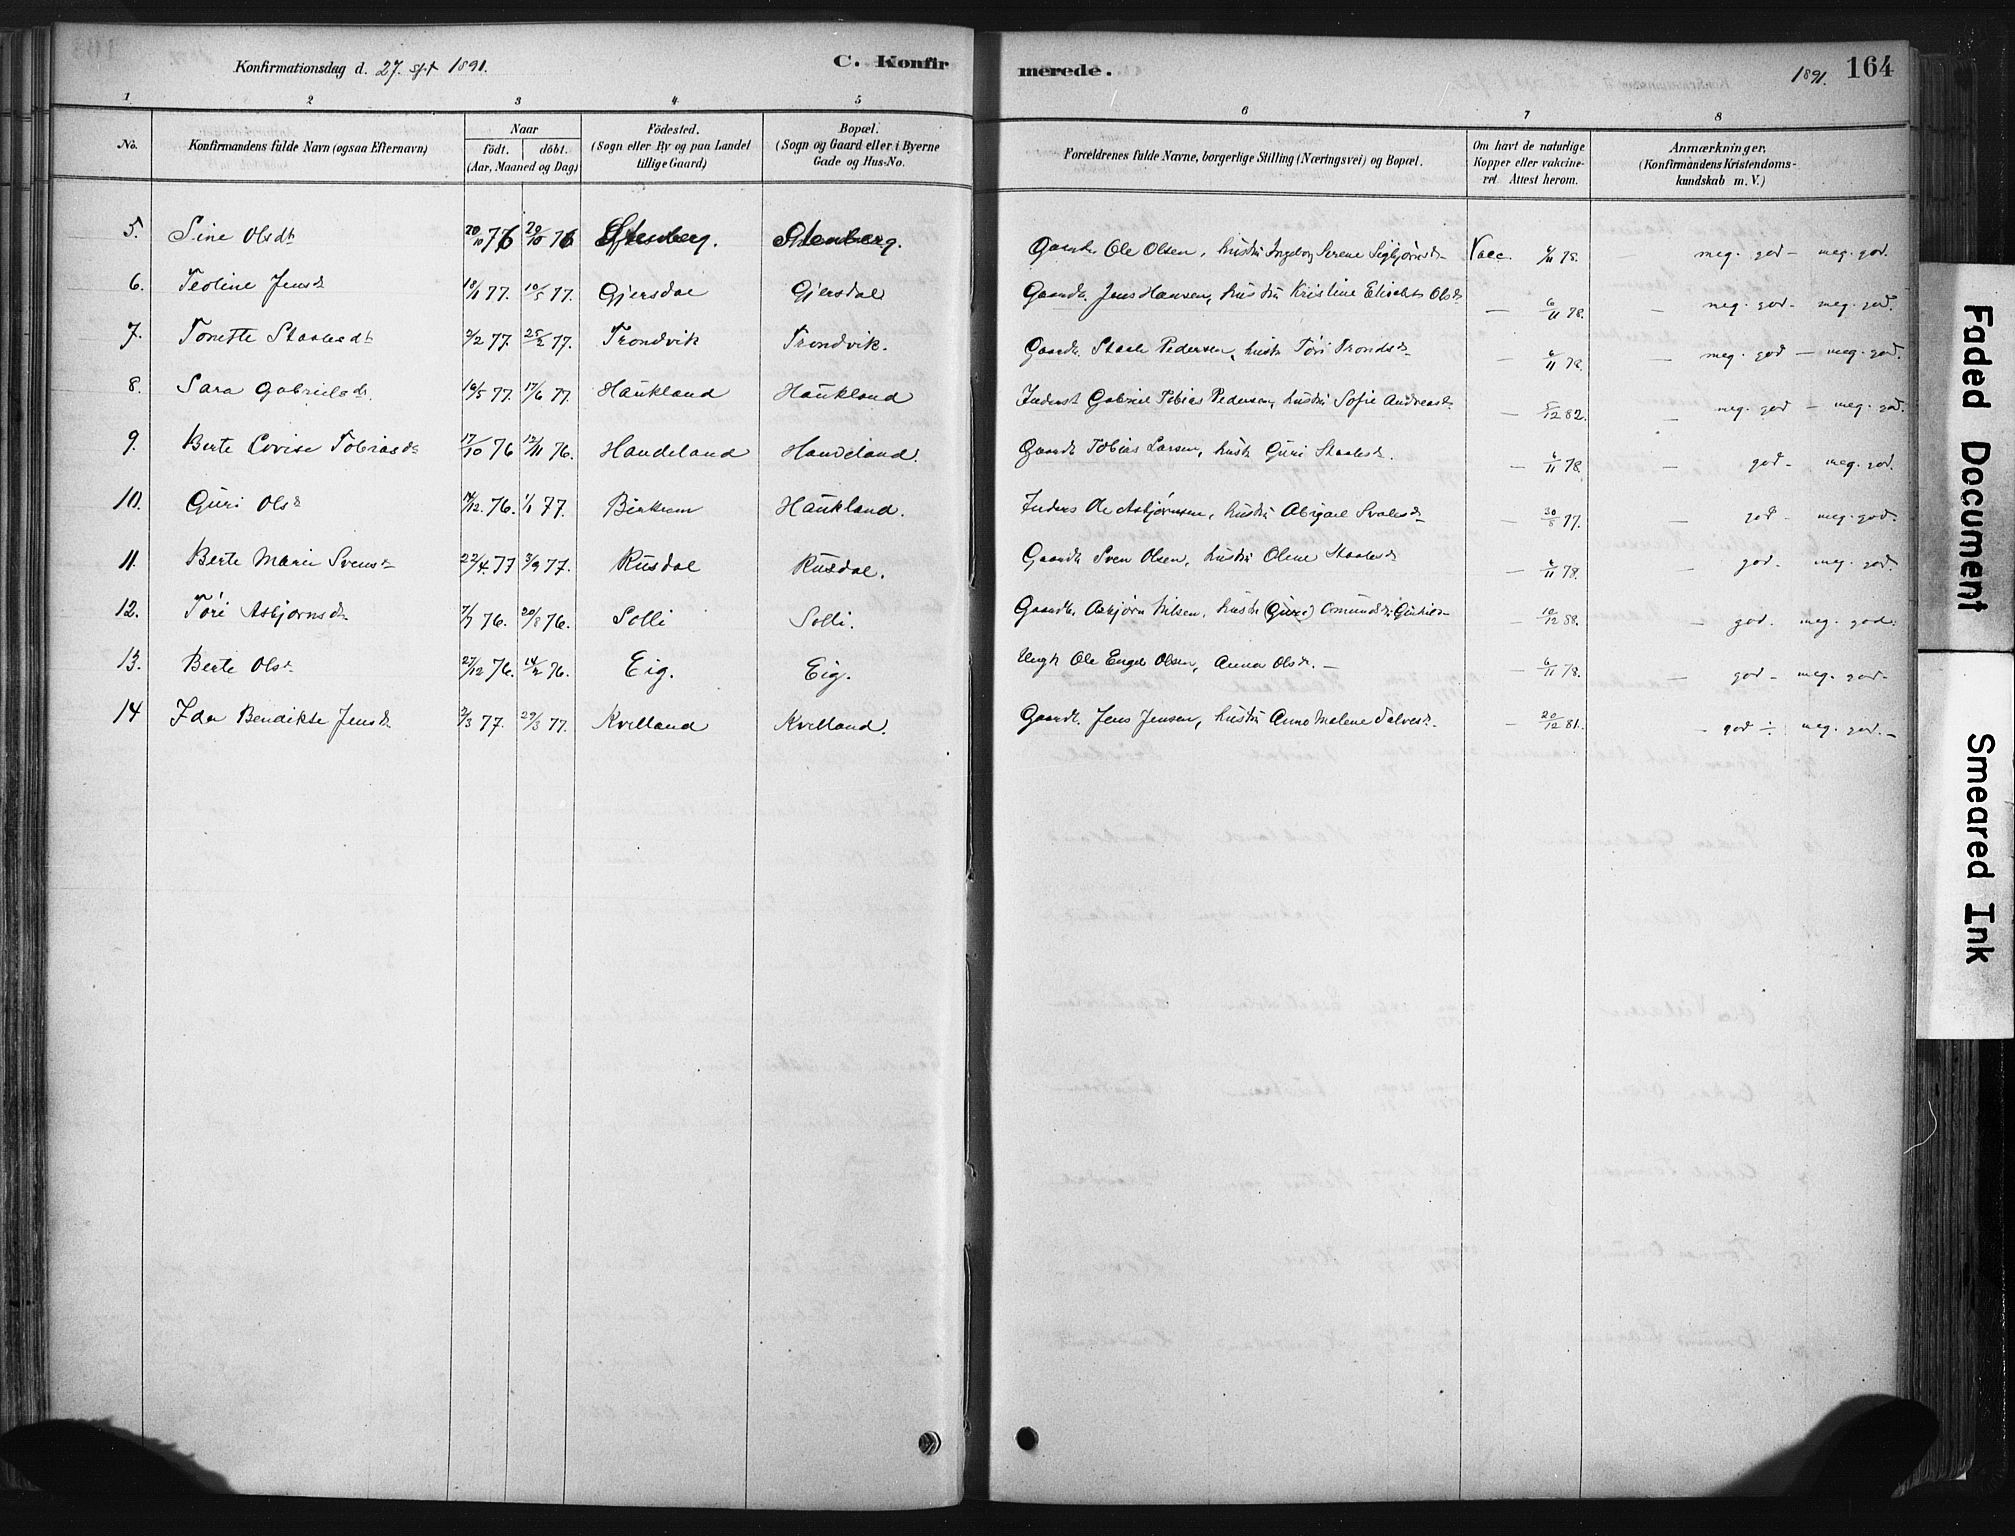 Konfirmationsdag d. 27. Spt 1891. C. Konfirmerede. 1891. 164
1 2 3 4 5 6 7 8
No. Konfirmandens fulde Navn (ogsaa Efternavn) Naar födt. döbt. (Aar, Maaned og Dag) Födested. (Sogn eller By og paa Landet tillige Gaard) Bopæl. (Sogn og Gaard eller i Byerne Gade og Hus-No. Forældrenes fulde Navne, borgerlige Stilling (Næringsvei) og Bopæl. Om havt de naturlige Kopper eller vakcineret Attest herom. Anmærkninger, (Konfirmandens Kristendomskundskab m. V.)
5. Sine Olsdt 20/10 76 29/10 76 Stenberg. Stenberg. Gaardb. Ole Olsen, Hustru Ingeborg Serene Sigbjørnsdt Vacc. 6/11 78. meg. god - meg. god.
6. Teoline Jensdt 18/1 77. 10/5 77. Gjersdal Gjersdal Gaardb. Jens Hansen, Hustru Kristine Elisabet Olsdt — 6/11 78. — meg. god - meg. god.
7. Tonette Staalesdt 2/2 77. 25/2 77. Trondvik Trondvik. Gaardb. Staale Pedersen, Hustr Tori Trondsdt — 6/11 78. — meg. god — meg. god.
8. Sara Gabrielsdt. 16/5 77. 17/6 77. Haukland Haukland Inderst Gabriel Tobias Pedersen, Hustru Sofie Andreasdt. — 5/12 82. — meg. god — meg. god.
9. Berte Lovise Tobiasdt 17/10 76 12/11 76. Handeland Handeland. Gaardb Tobias Larsen, Hustr Guri Staalesdt. — 6/11 78. — god - meg. god.
10. Guri Olsdt 14/12 76. 1/1 77. Birkrem Haukland. Inders Ole Asbjørnsen, Hustru Abigael Svalesdt — 30/8 77. — god - meg. god.
11. Berte Marie Svensdt 22/4 77 2/9 77. Rusdal Rusdal. Gaardb Sven Olsen, Hustru Olene Staalesdt — 6/11 78. — god. meg. god.
12. Tori Asbjørnsdt 7/7 76. 20/8 76. Solli Solli. Gaardb. Asbjørn Nilsen, Hustr (Guri) — 10/12 88. — god. meg. god.
13. Berte Olsdt 27/12 76. 76. Eig. Eig. Ungk Ole Engel Olsen, Anna Olsdt. — — 6/11 78. — god - meg. god -
14 Ida Bendikte Jensdt 2/3 77. 29/3 77. Kvelland Kvelland. Gaardb. Jens Jensen, Hustru Anne Malene Salvesdt. — 20/12 81. — god ÷ meg. god. -
Faded Document
Smeared Ink